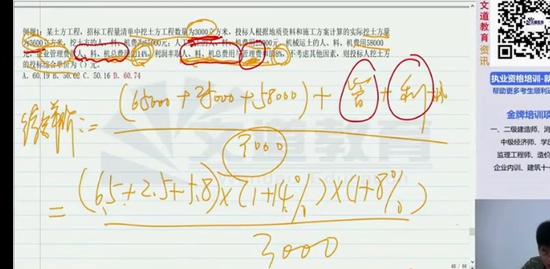 例题1：某土方工程，招标工程量清单中挖土方工程数量为3000立方米，投标人根据地质资料和施工方案计算的实际挖土方量
为5600立方米，挖土方的人、料、机费为65000元，人工运土的人、料、机费用25000元，机械运土的人、料、机费用58000
元，企业管理费取人、料、机总费用的14%，利润率取人、料、机总费用与管理费和的8%，不考虑其他因素，则投标人挖土方
的投标综合单价为（ ）元。
A. 60.19 B. 50.62 C. 50.16 D. 60.74
综合单价:=
(65000+25000+58000)+管+利
3000
=
(6.5+2.5+5.8)×(1+14%)×(1+8%)
3000
文道教育
文道教育
资讯
执业资格培训-
帮助更多考生顺利
金牌培训项
一、二级建造师、消
中级经济师、学历
监理工程师、造价
企业内训、建筑十一